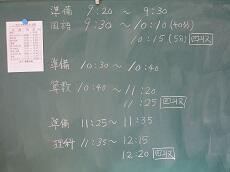 準備 9:20 ～ 9:30
国語 9:30 ～ 10:10 (40分)
10:15 (5分) 回収
準備 10:30 ～ 10:40
算数 10:40 ～ 11:20
11:25 回収
準備 11:25 ～ 11:35
理科 11:35 ～ 12:15
12:20 回収